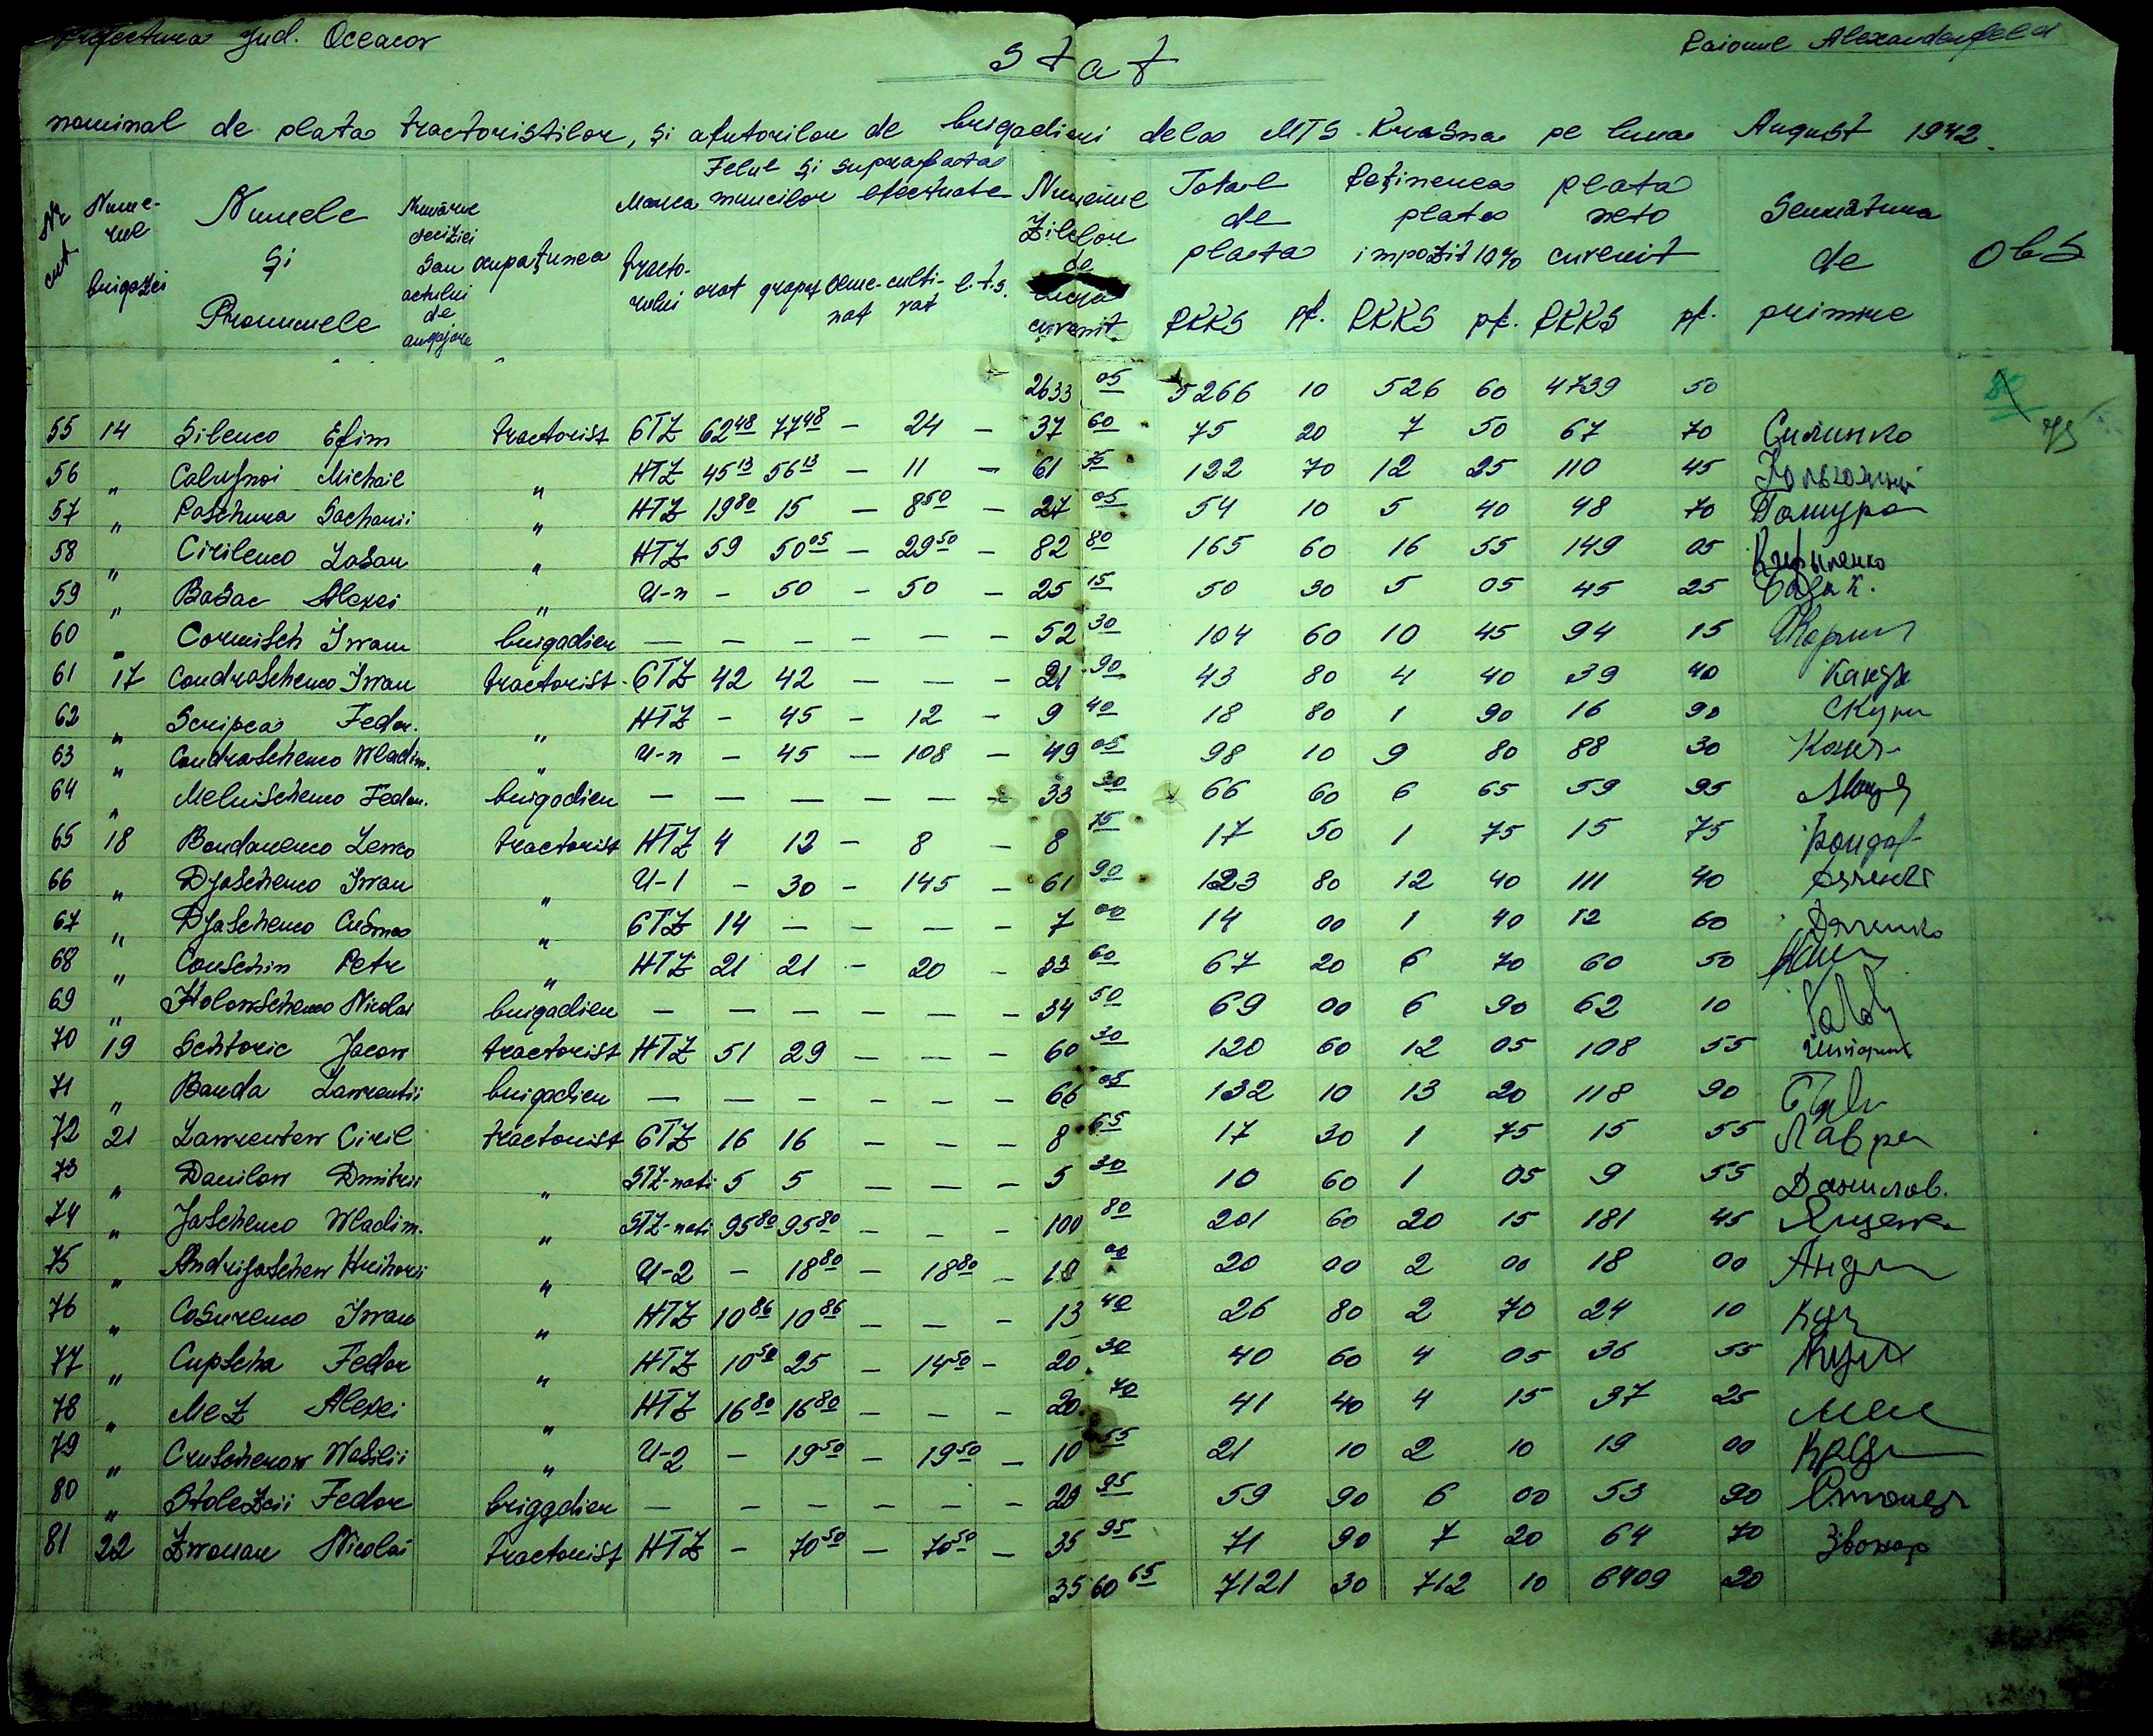 Prefectura Jud. Oceacov
Raionul Alexanderfeld
Stat
nominal de plata tractoristilor, și ajutorilor de brigadieri dela MTS Krasna pe luna August 1942.
Nr crt. Numerul brigăzei Numele și Pronumele Numărul deciziei sau actului de angajare ocupațunea Marca tractorului Felul și suprafața muncilor efectuate arat grapat semenat cultivat l.t.s. Numărul Zilelor de cuvenit Total de plata RKKS pf. Reținerea plata impozit 10% RKKS pf. plata neto cuvenit RKKS pf. Semnătura de primire Obs
2633 05 5266 10 526 60 4739 50
55 14 Silenco Efim tractorist CTZ 62 48 77 48 — 24 — 37 60 75 20 7 50 67 70 Силинко
56 " Calujnoi Michail " HTZ 45 13 56 13 — 11 — 61 35 122 70 12 25 110 45
57 " Paschura Sacharii " HTZ 19 80 15 — 8 50 — 27 05 54 10 5 40 48 70 Пашура
58 " Cirilenco Lasar " HTZ 59 50 05 — 29 50 — 82 80 165 60 16 55 149 05 Кириленко
59 " Basac Alexei " U-n — 50 — 50 — 25 15 50 30 5 05 45 25
60 " Cornisch Iwan brigadier — — — — — — 52 30 104 60 10 45 94 15
61 17 Condraschenco Iwan tractorist CTZ 42 42 — — — 21 90 43 80 4 40 39 40
62 " Scripca Fedor. " HTZ — 45 — 12 — 9 40 18 80 1 90 16 90
63 " Condraschenco Wladim. " U-n — 45 — 108 — 49 05 98 10 9 80 88 30
64 " Melnischenco Fedor. brigadier — — — — — — 33 30 66 60 6 65 59 95
65 18 Bondarenco Lewco tractorist HTZ 4 12 — 8 — 8 75 17 50 1 75 15 75
66 " Djaschenco Iwan " U-1 — 30 — 145 — 61 90 123 80 12 40 111 40
67 " Djaschenco Cusma " CTZ 14 — — — — 7 00 14 00 1 40 12 60
68 " Conschin Petr " HTZ 21 21 — 20 — 33 60 67 20 6 70 60 50
69 " Holowschenco Nicolai brigadier — — — — — — 34 50 69 00 6 90 62 10
70 19 Schtoric Jacow tractorist HTZ 51 29 — — — 60 30 120 60 12 05 108 55
71 " Banda Lawrentii brigadier — — — — — — 66 05 132 10 13 20 118 90
72 21 Lawrentew Ciril tractorist CTZ 16 16 — — — 8 65 17 30 1 75 15 55 Лавре
73 " Danilow Dmitrii " STZ-nati 5 5 — — — 5 30 10 60 1 05 9 55 Данилов.
74 " Jaschenco Wladim. " STZ-nati 95 80 95 80 — — — 100 80 201 60 20 15 181 45
75 " Andrijaschew Hrihorii " U-2 — 18 80 — 18 80 — 10 00 20 00 2 00 18 00
76 " Cosurenco Iwan " HTZ 10 86 10 86 — — — 13 40 26 80 2 70 24 10
77 " Cupscha Fedor " HTZ 10 50 25 — 14 50 — 20 30 40 60 4 05 36 55
78 " Mez Alexei " HTZ 16 80 16 80 — — — 20 70 41 40 4 15 37 25
79 " Cruschenow Wasilii " U-2 — 19 50 — 19 50 — 10 55 21 10 2 10 19 00
80 " Stolezcii Fedor briggdier — — — — — — 29 95 59 90 6 00 53 90
81 22 Zwonar Nicolai tractorist HTZ — 70 50 — 70 50 — 35 95 71 90 7 20 64 70 Звонар
3560 65 7121 30 712 10 6409 20